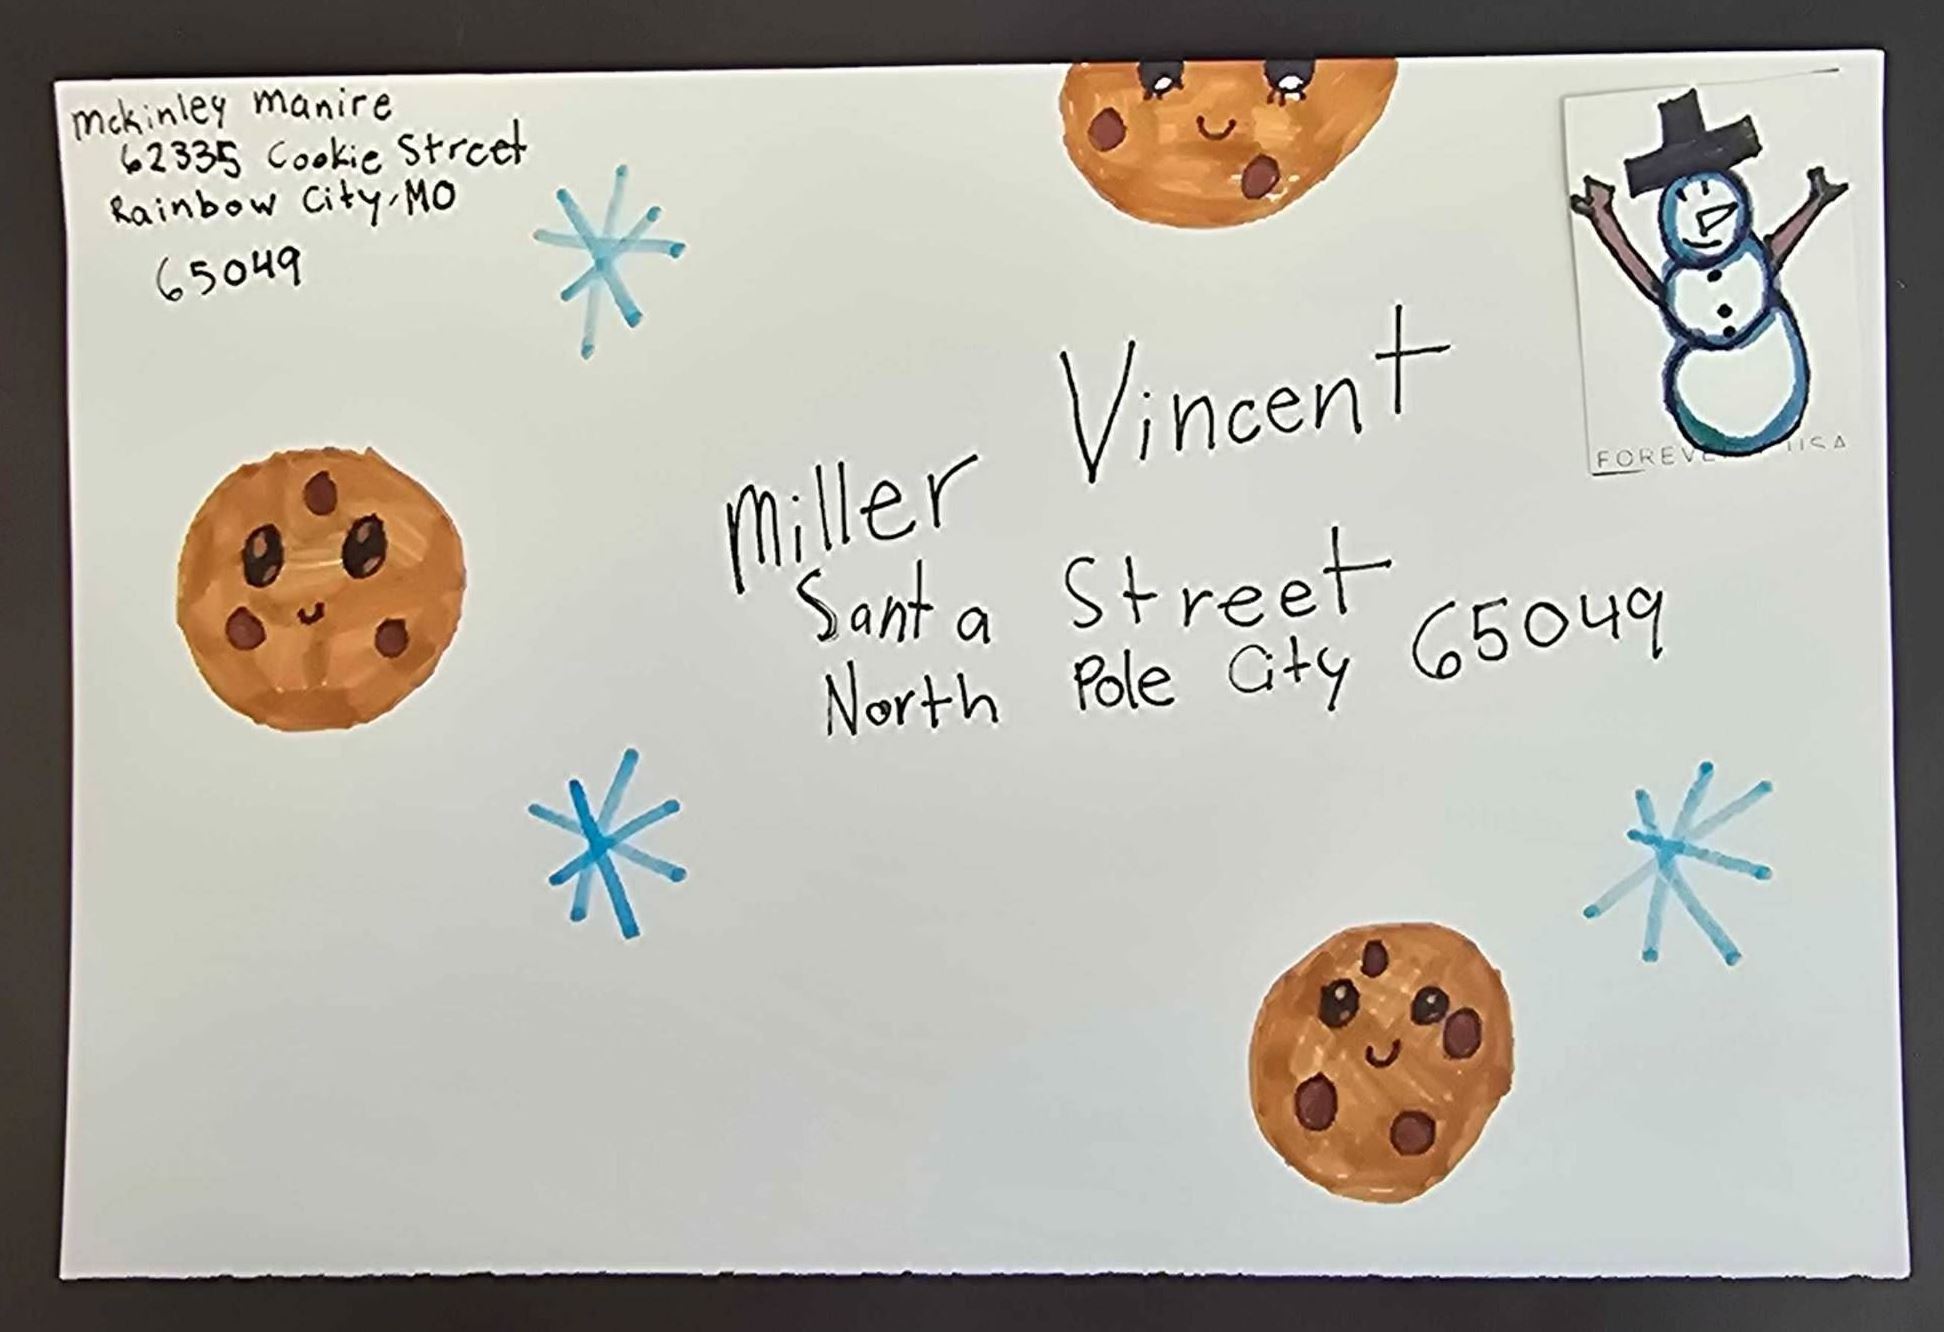 Mckinley Manire
62335 Cookie Street
Rainbow City, MO
65049
Miller Vincent
Santa Street
North Pole City 65049
FOREVE USA